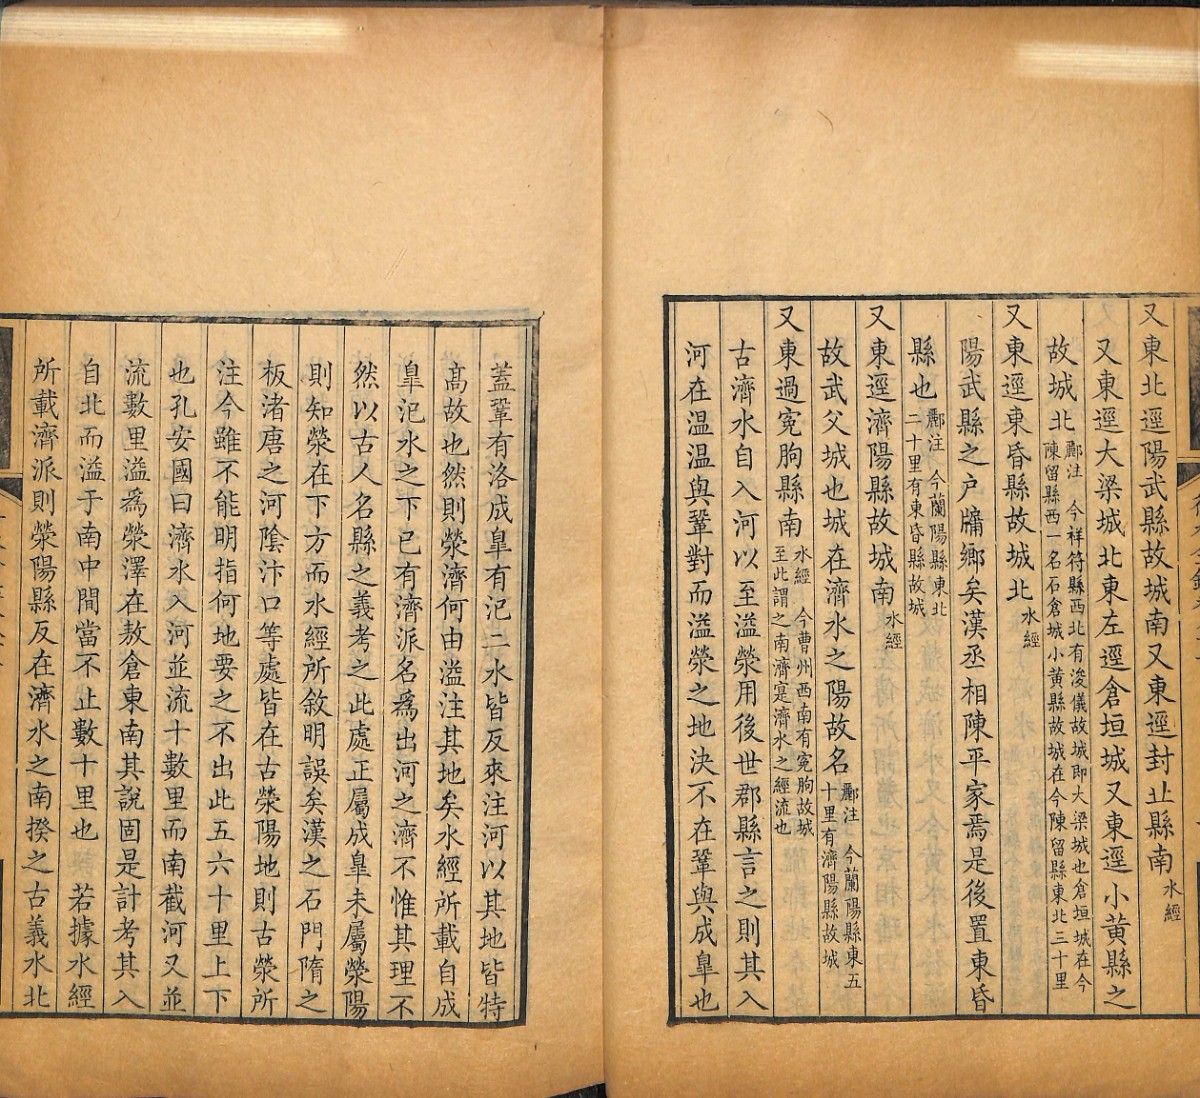 又東北逕陽武縣故城南又東逕封丘縣南水經
又東逕大梁城北東左逕倉垣城又東逕小黃縣之
故城北酈注 今祥符縣西北有浚儀故城即大梁城也倉垣城在今
陳留縣西一名石倉城小黃縣故城在今陳留縣東北三十里
又東逕東昏縣故城北水經
陽武縣之户牖鄉矣漢丞相陳平家焉是後置東昏
縣也酈注 今蘭陽縣東北
二十里有東昏縣故城
又東逕濟陽縣故城南水經
故武父城也城在濟水之陽故名酈注 今蘭陽縣東五
十里有濟陽縣故城
又東過寃朐縣南水經 今曹州西南有寃朐故城
至此謂之南濟寔濟水之經流也
古濟水自入河以至溢滎用後世郡縣言之則其入
河在温温與鞏對而溢滎之地決不在鞏與成皐也
蓋鞏有洛成皐有汜二水皆反來注河以其地皆特
髙故也然則滎濟何由溢注其地矣水經所載自成
皐汜水之下已有濟派名爲出河之濟不惟其理不
然以古人名縣之義考之此處正屬成皐未屬滎陽
則知滎在下方而水經所敘明誤矣漢之石門隋之
板渚唐之河隂汴口等處皆在古滎陽地則古滎所
注今雖不能明指何地要之不出此五六十里上下
也孔安國曰濟水入河並流十數里而南截河又並
流數里溢爲滎澤在敖倉東南其說固是計考其入
自北而溢于南中間當不止數十里也 若據水經
所載濟派則滎陽縣反在濟水之南揆之古義水北